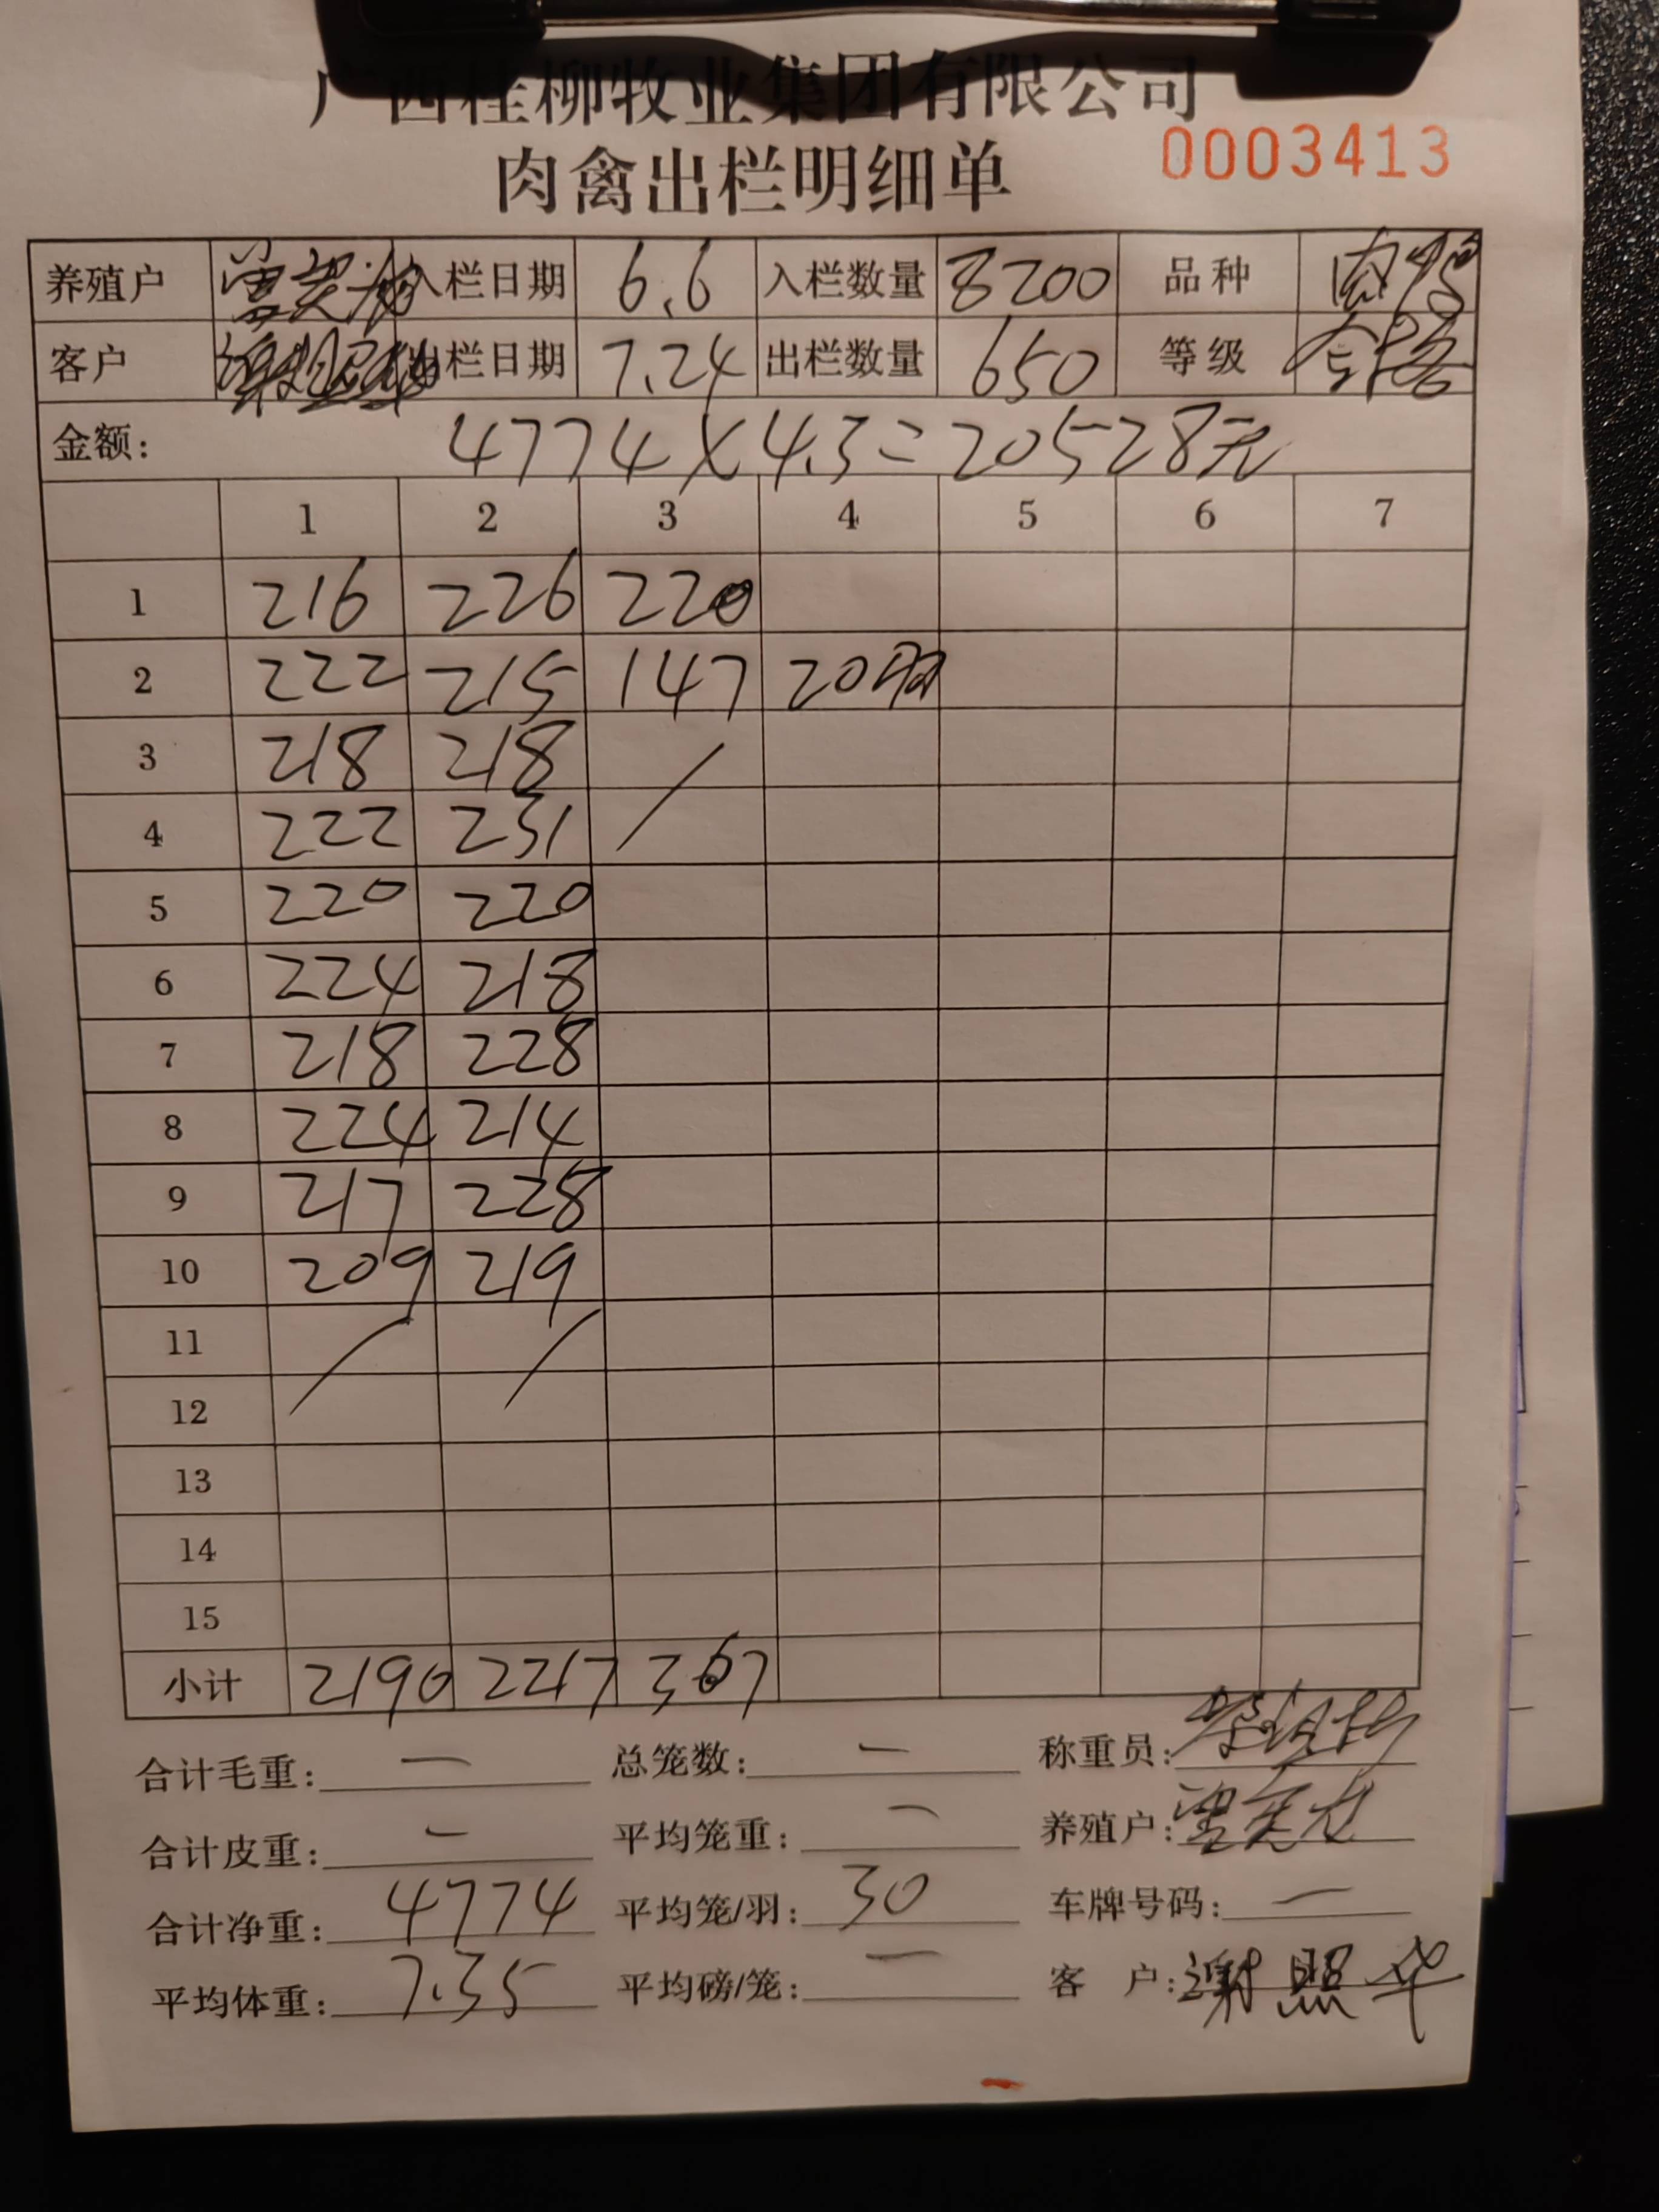 广西桂柳牧业集团有限公司
肉禽出栏明细单 0003413
养殖户 入栏日期 6.6 入栏数量 8200 品种 肉鸭
客户 谢照华 出栏日期 7.24 出栏数量 650 等级 合格
金额: 4774×4.3=20528元
1 2 3 4 5 6 7
1 216 226 220
2 222 215 147 20羽
3 218 218
4 222 231
5 220 220
6 224 218
7 218 228
8 224 214
9 217 228
10 209 219
11
12
13
14
15
小计 2190 2217 367
合计毛重: 一 总笼数: 一 称重员:
合计皮重: 一 平均笼重: 一 养殖户:
合计净重: 4774 平均笼/羽: 30 车牌号码: 一
平均体重: 7.35 平均磅/笼: 一 客户: 谢照华